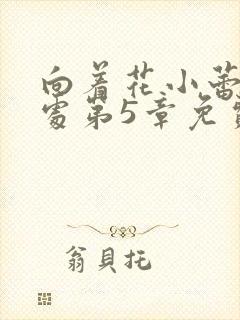 向着花小蕾
处第5章免费
翁貝托